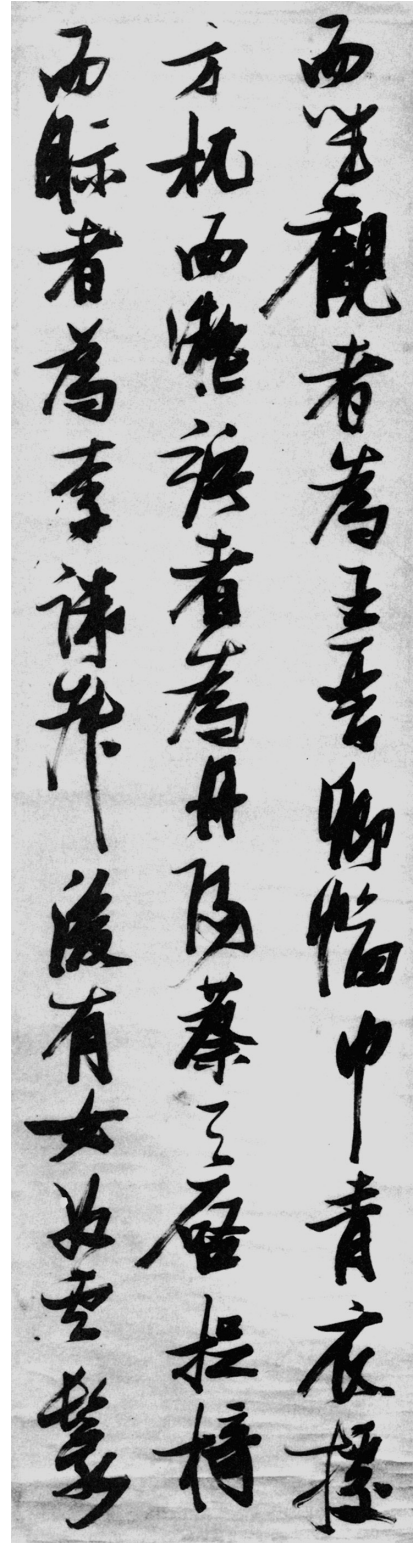 而坐觀者為王晉卿幅巾青衣據
方机而凝竚者為丹陽蔡天啓捉椅
而眎者為李端叔後有女奴雲鬟